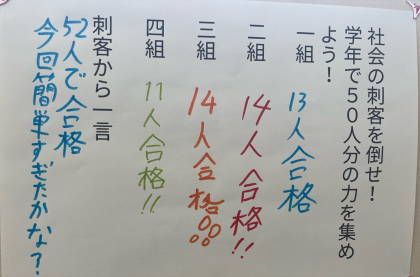 社会の刺客を倒せ！
学年で５０人分の力を集め
よう！
一組 13人合格
二組 14人合格!!
三組 14人合格!!
四組 11人合格!!
刺客から一言
52人で合格
今回簡単すぎたかな？